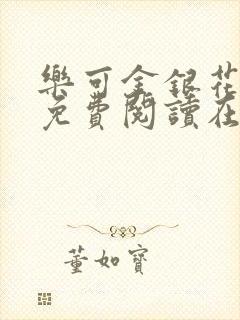 樂可金銀花
免費閱讀在
董如寶